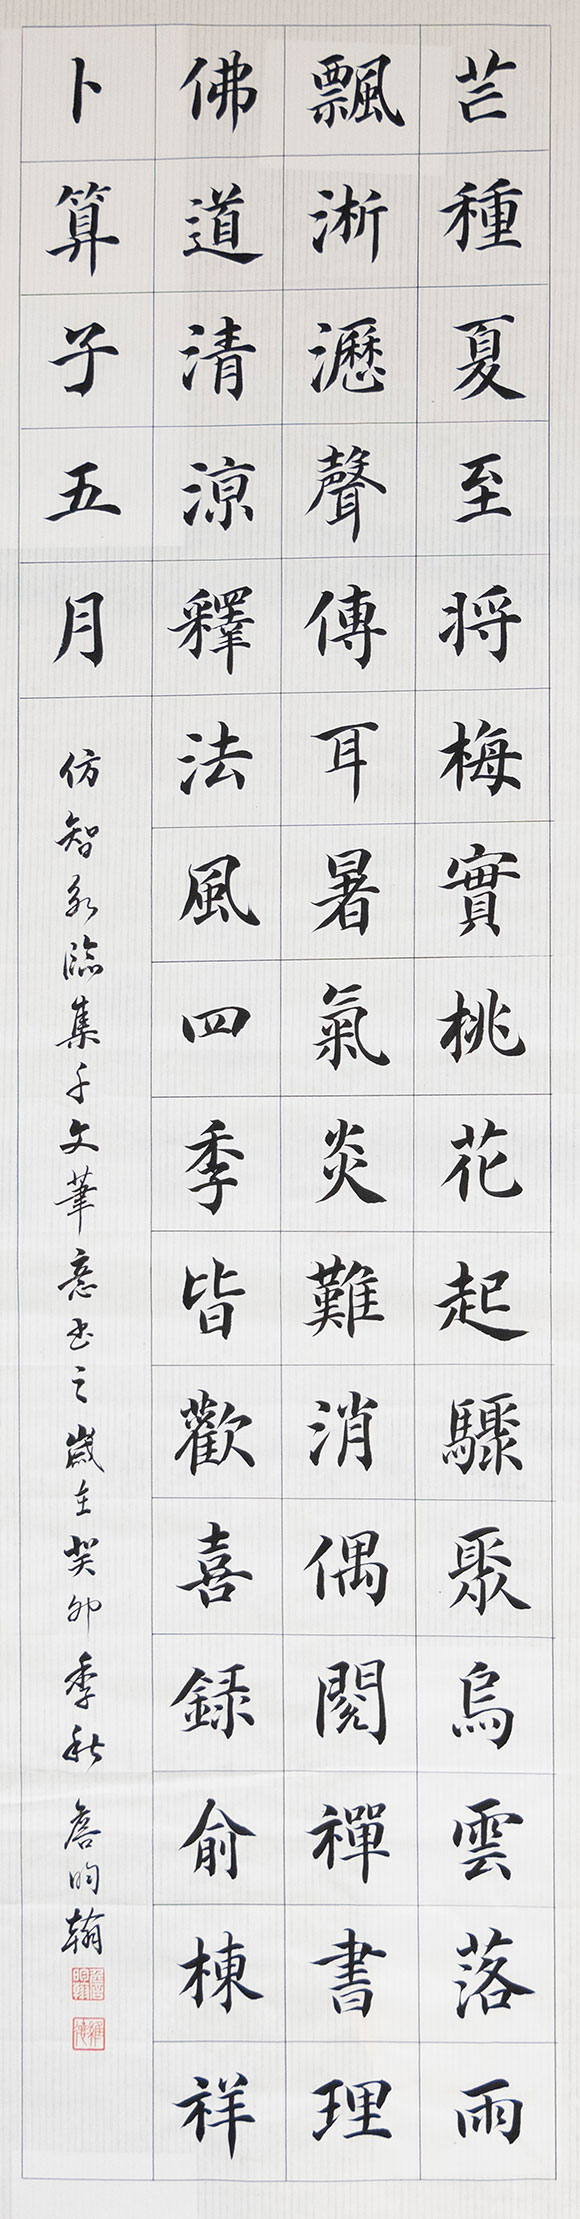 芒種夏至將梅實桃花起驟聚烏雲落雨
飄淅瀝聲傳耳暑氣炎難消偶閱禪書理
佛道清涼釋法風四季皆歡喜錄俞棟祥
卜算子五月
仿智永臨集千文筆意書之歲在癸卯季秋詹昀翰